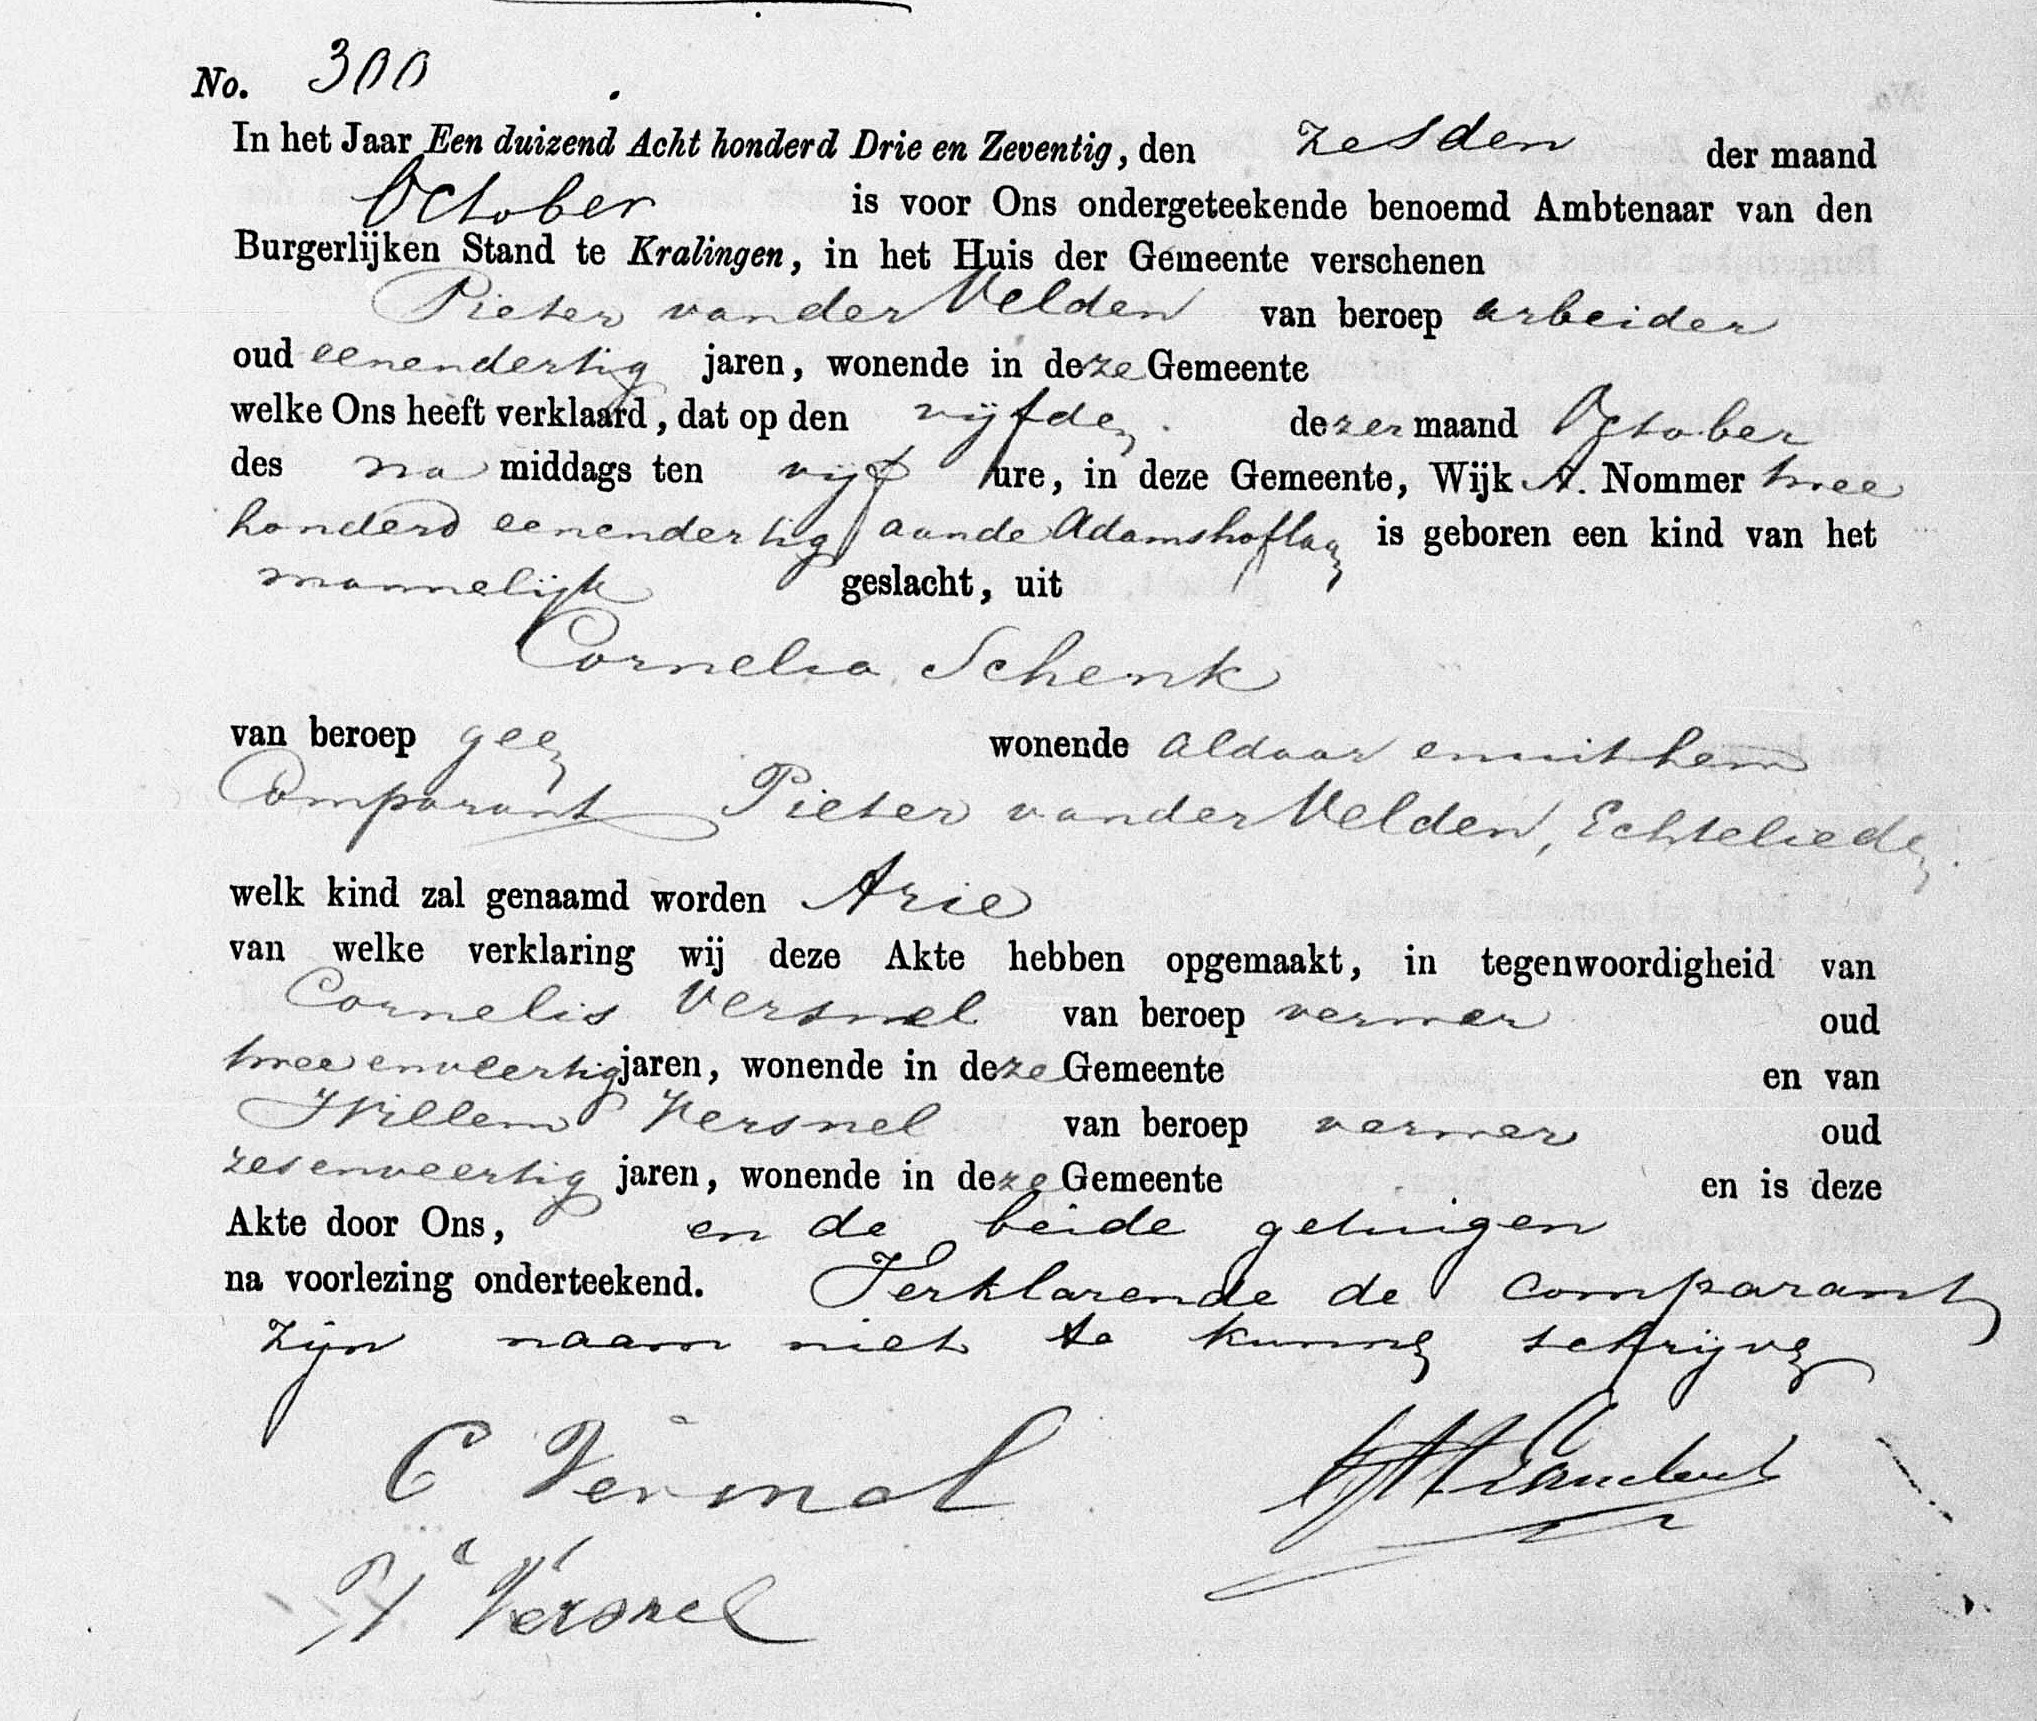 No. 300
In het Jaar Een duizend Acht honderd Drie en Zeventig, den zesden der maand
October is voor Ons ondergeteekende benoemd Ambtenaar van den
Burgerlijken Stand te Kralingen, in het Huis der Gemeente verschenen
Pieter van der Velden van beroep arbeider
oud eenendertig jaren, wonende in deze Gemeente
welke Ons heeft verklaard, dat op den vijfden dezer maand October
des na middags ten vijf ure, in deze Gemeente, Wijk A. Nommer twee
honderd eenendertig aan de Adamshoflaan is geboren een kind van het
mannelijk geslacht, uit
Cornelia Schenk
van beroep geen wonende aldaar en uit hem
Comparant Pieter van der Velden, Echtelieden.
welk kind zal genaamd worden Arie
van welke verklaring wij deze Akte hebben opgemaakt, in tegenwoordigheid van
Cornelis Versnel van beroep verwer oud
twee en veertig jaren, wonende in deze Gemeente en van
Willem Versnel van beroep verwer oud
zes en veertig jaren, wonende in deze Gemeente en is deze
Akte door Ons, en de beide getuigen
na voorlezing onderteekend. Verklarende de comparant
zijn naam niet te kunnen schrijven
C Versnel
W Versnel